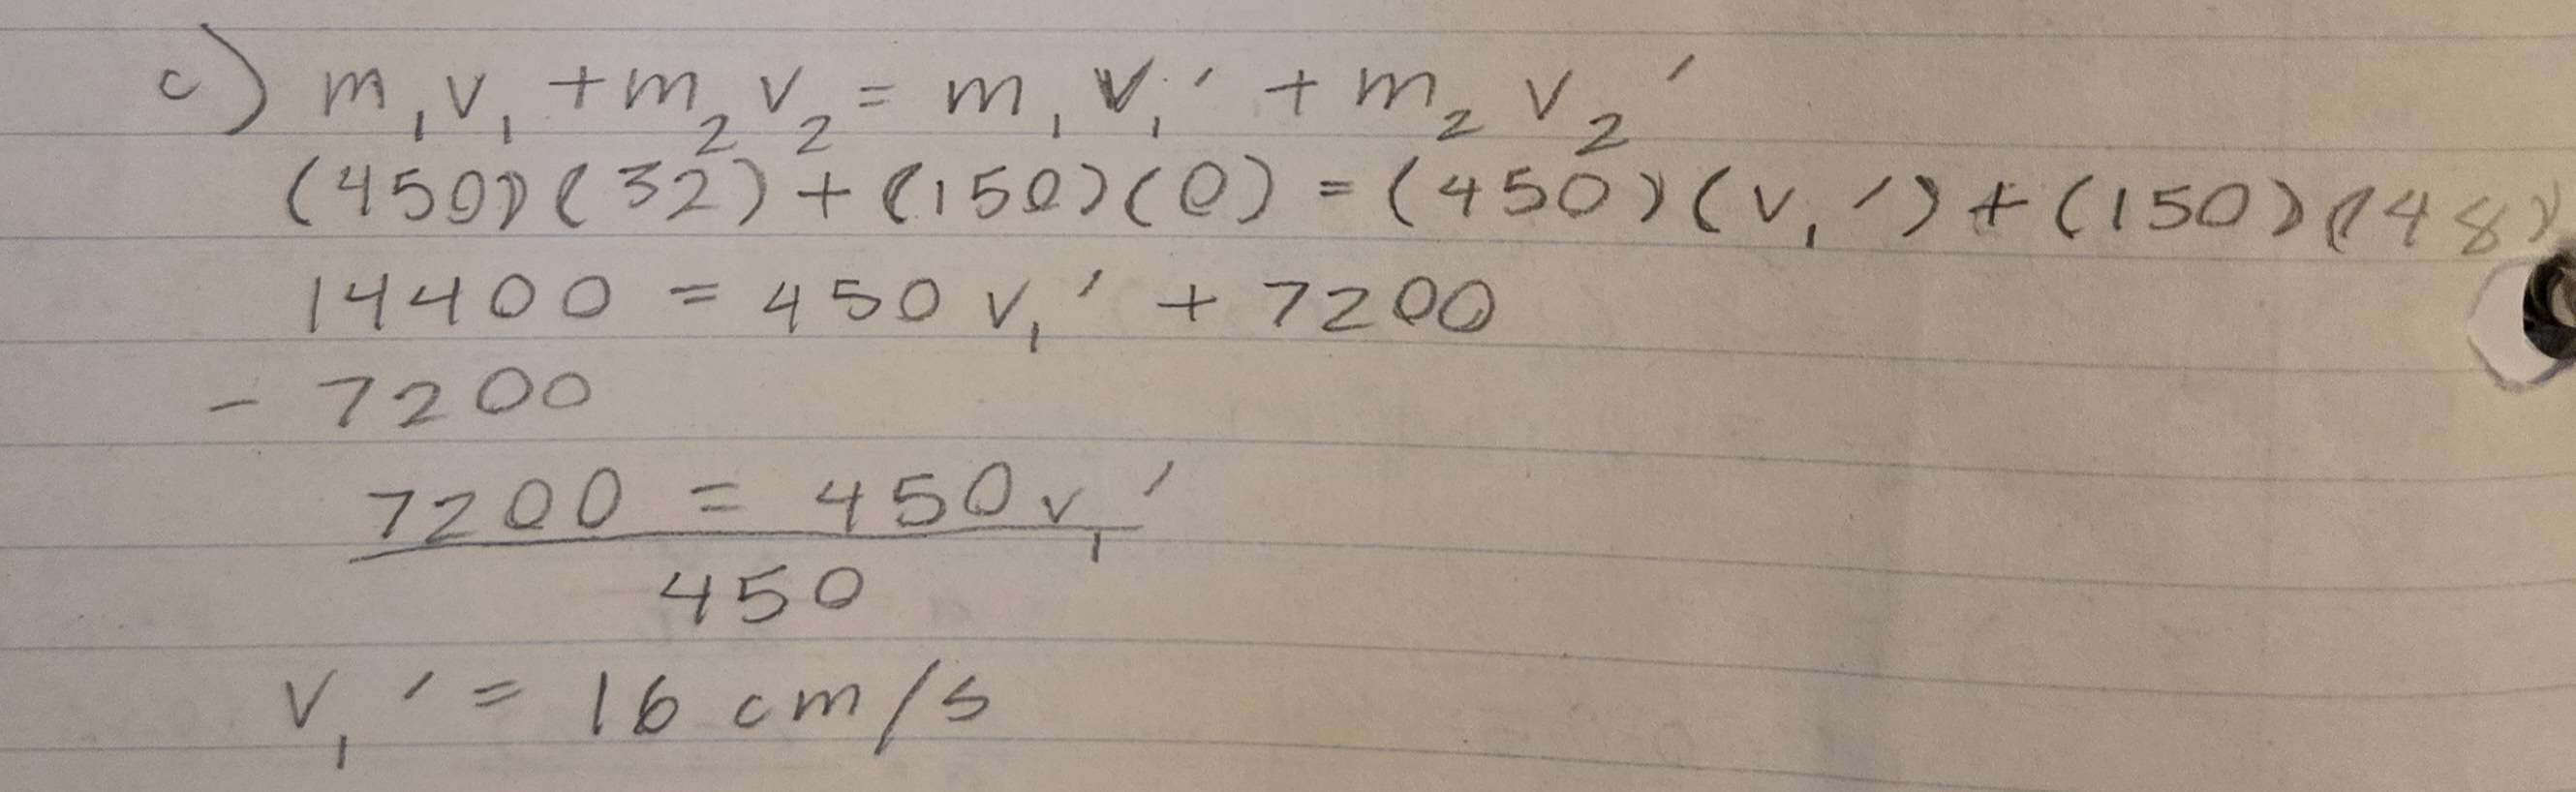 c) m₁v₁ + m₂v₂ = m₁v₁′ + m₂v₂′
(450)(32) + (150)(0) = (450)(v₁′) + (150)(48)
14400 = 450v₁′ + 7200
- 7200
7200 = 450v₁′
450
v₁′ = 16 cm/s